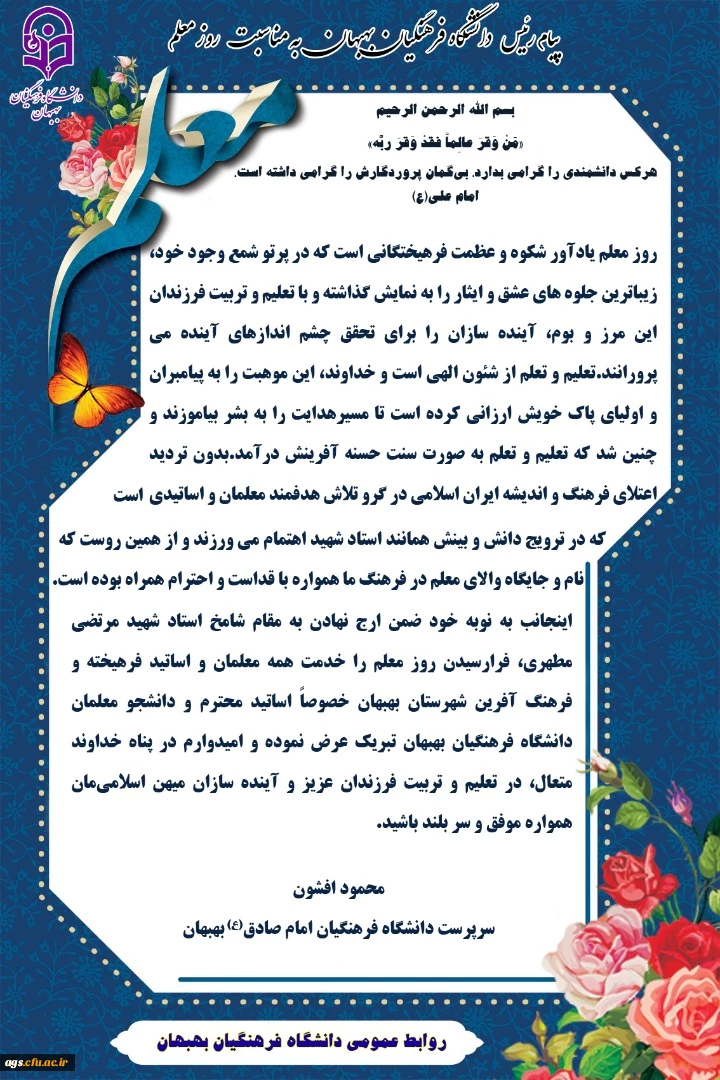 پیام رئیس دانشگاه فرهنگیان بهبهان به مناسبت روز معلم
دانشگاه فرهنگیان
بهبهان
معلم
بسم الله الرحمن الرحیم
«مَنْ وَقَرَ عالِماً فَقَدْ وَقَرَ ربَّه»
هرکس دانشمندی را گرامی بدارد. بی‌گمان پروردگارش را گرامی داشته است.
امام علی(ع)
روز معلم یادآور شکوه و عظمت فرهیختگانی است که در پرتو شمع وجود خود،
زیباترین جلوه های عشق و ایثار را به نمایش گذاشته و با تعلیم و تربیت فرزندان
این مرز و بوم، آینده سازان را برای تحقق چشم اندازهای آینده می
پرورانند.تعلیم و تعلم از شئون الهی است و خداوند، این موهبت را به پیامبران
و اولیای پاک خویش ارزانی کرده است تا مسیرهدایت را به بشر بیاموزند و
چنین شد که تعلیم و تعلم به صورت سنت حسنه آفرینش درآمد.بدون تردید
اعتلای فرهنگ و اندیشه ایران اسلامی در گرو تلاش هدفمند معلمان و اساتیدی است
که در ترویج دانش و بینش همانند استاد شهید اهتمام می ورزند و از همین روست که
نام و جایگاه والای معلم در فرهنگ ما همواره با قداست و احترام همراه بوده است.
اینجانب به نوبه خود ضمن ارج نهادن به مقام شامخ استاد شهید مرتضی
مطهری، فرارسیدن روز معلم را خدمت همه معلمان و اساتید فرهیخته و
فرهنگ آفرین شهرستان بهبهان خصوصاً اساتید محترم و دانشجو معلمان
دانشگاه فرهنگیان بهبهان تبریک عرض نموده و امیدوارم در پناه خداوند
متعال، در تعلیم و تربیت فرزندان عزیز و آینده سازان میهن اسلامی‌مان
همواره موفق و سر بلند باشید.
محمود افشون
سرپرست دانشگاه فرهنگیان امام صادق(ع) بهبهان
روابط عمومی دانشگاه فرهنگیان بهبهان
ags.cfu.ac.ir